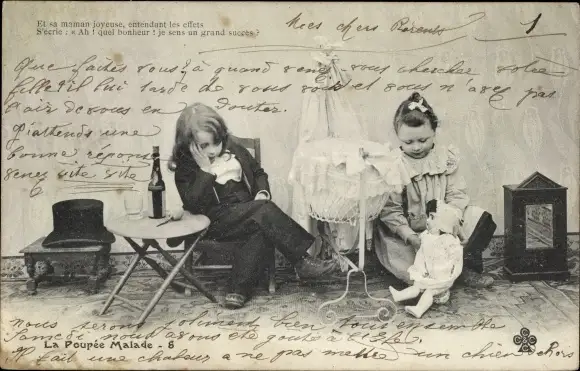 Et sa maman joyeuse, entendant les effets
S'écrie : « Ah ! quel bonheur ! je sens un grand succès ?
Mes chers Parents
1
Que faites vous? à quand venez vous chercher votre
fillette il lui tarde de vous voir et vous n'avez pas
l'air de vous en douter.
J'attends une
bonne réponse
venez vite vite
nous serons joliment bien tous ensemble
Samedi nous avons été goûté à
La Poupée Malade - 8
Il fait une chaleur a ne pas mettre un chien dehors